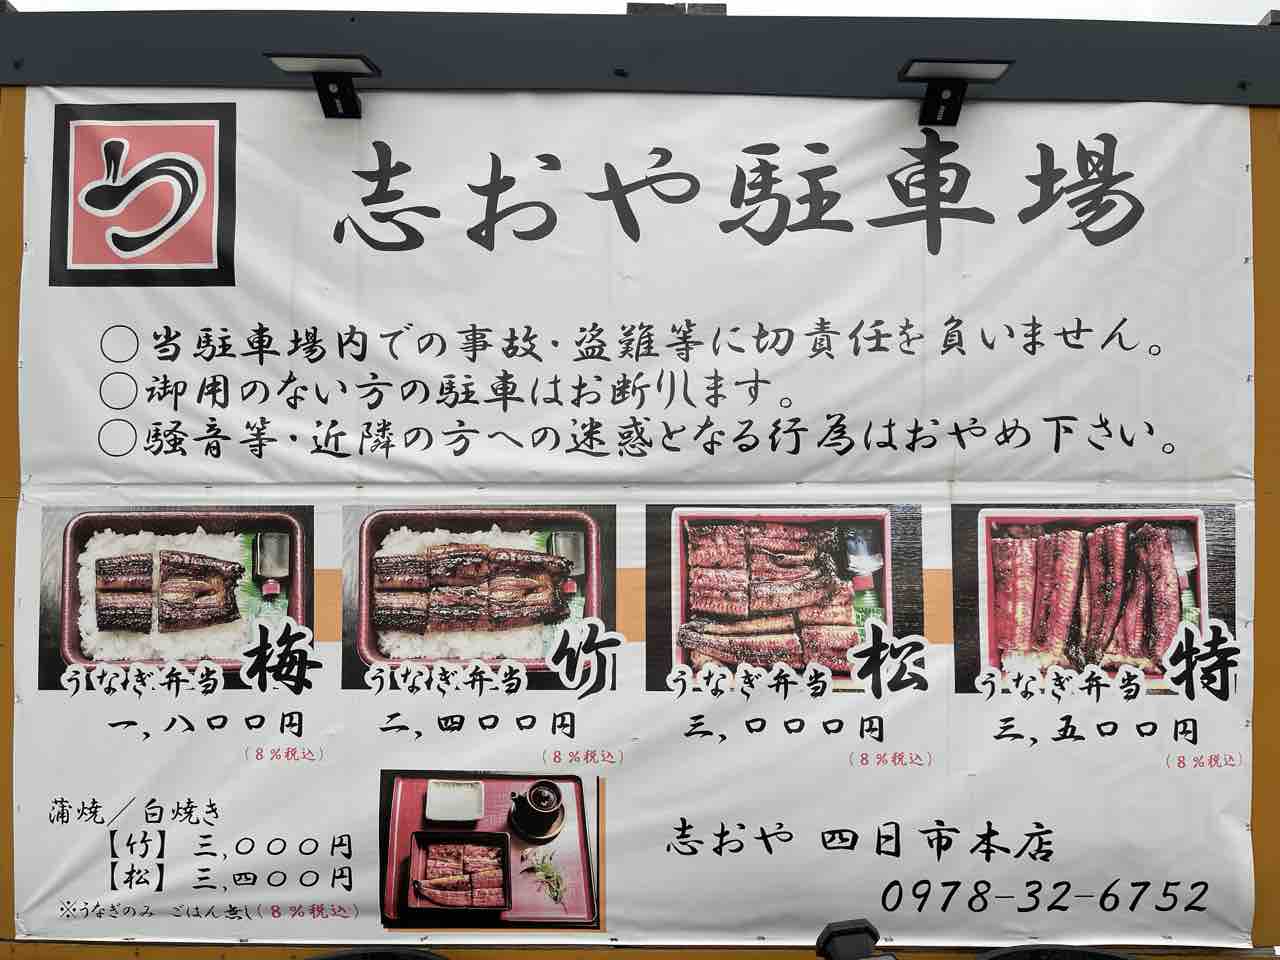 う
志おや駐車場
○当駐車場内での事故・盗難等に切責任を負いません。
○御用のない方の駐車はお断りします。
○騒音等・近隣の方への迷惑となる行為はおやめ下さい。
うなぎ弁当 梅
一,八〇〇円
(8%税込)
うなぎ弁当 竹
二,四〇〇円
(8%税込)
うなぎ弁当 松
三,〇〇〇円
(8%税込)
うなぎ弁当 特
三,五〇〇円
(8%税込)
蒲焼/白焼き
【竹】 三,〇〇〇円
【松】 三,四〇〇円
※うなぎのみ ごはん無し(8%税込)
志おや 四日市本店
0978-32-6752